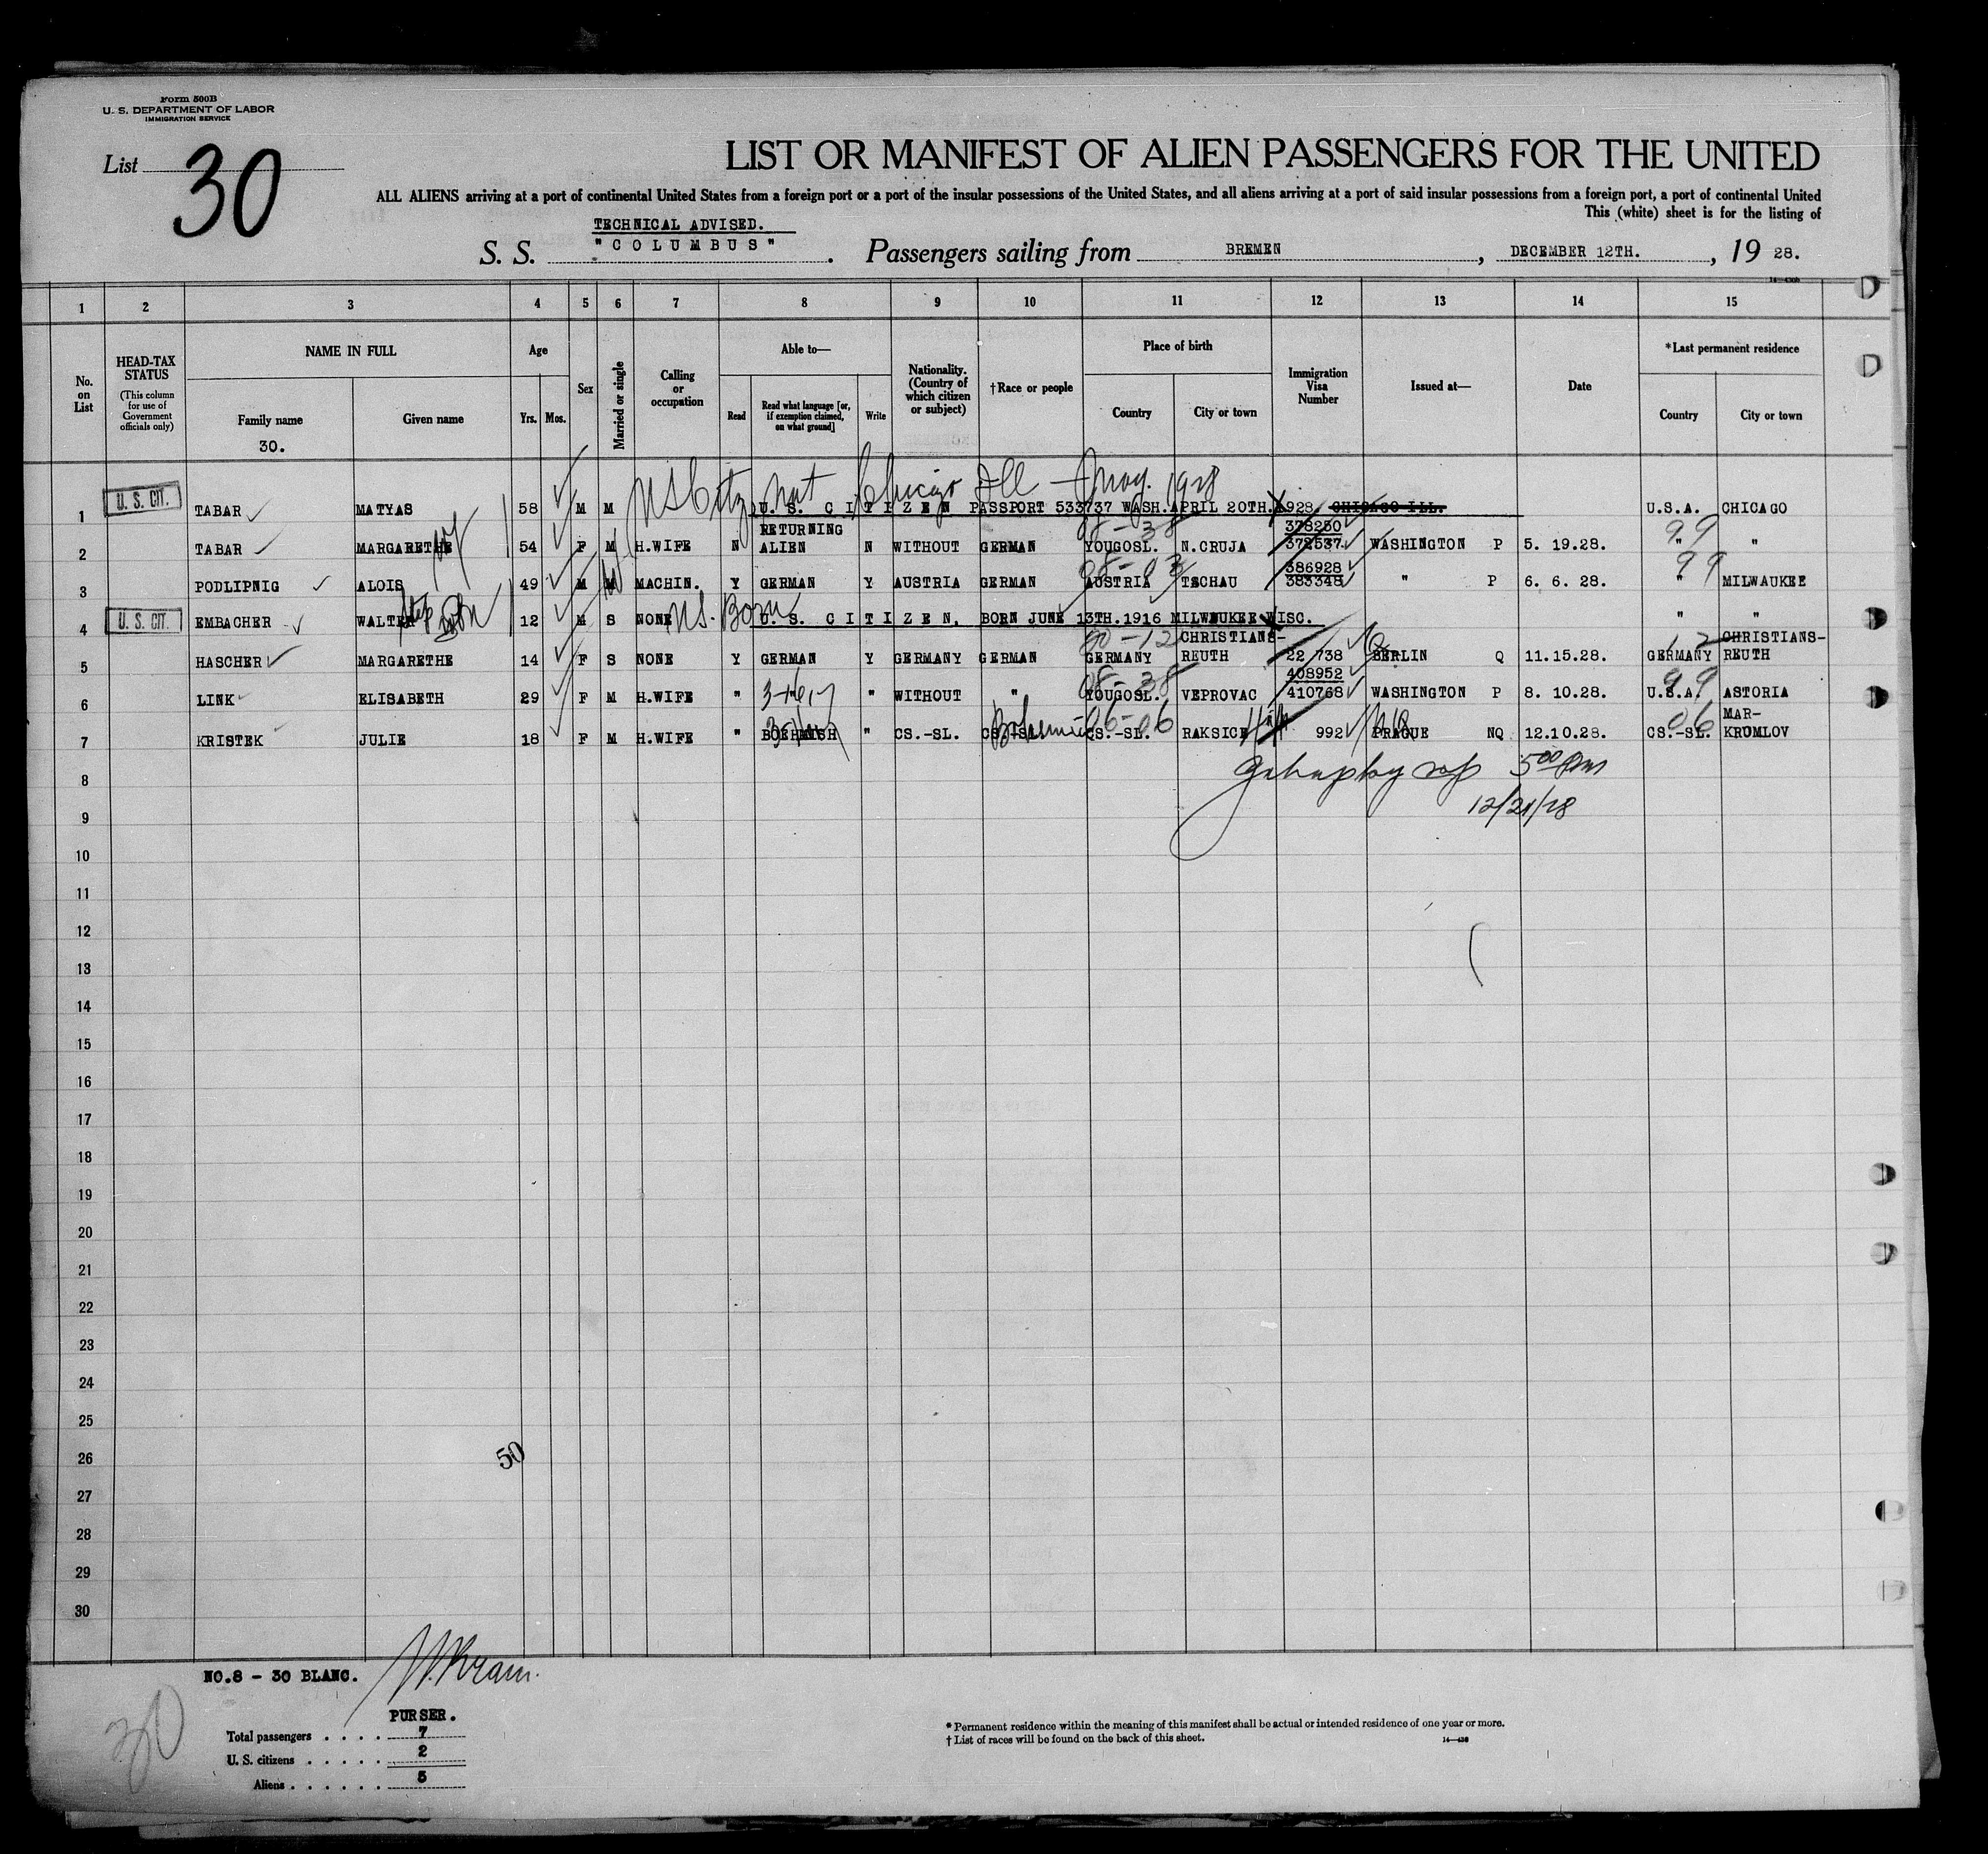 Form 500B
U. S. DEPARTMENT OF LABOR
IMMIGRATION SERVICE
List 30
LIST OR MANIFEST OF ALIEN PASSENGERS FOR THE UNITED
ALL ALIENS arriving at a port of continental United States from a foreign port or a port of the insular possessions of the United States, and all aliens arriving at a port of said insular possessions from a foreign port, a port of continental United
This (white) sheet is for the listing of
TECHNICAL ADVISED.
S. S. "COLUMBUS". Passengers sailing from BREMEN, DECEMBER 12TH., 19 28.
1 2 3 4 5 6 7 8 9 10 11 12 13 14 15
No. on List
HEAD-TAX STATUS
(This column for use of Government officials only)
NAME IN FULL
Family name
30.
Given name
Age
Yrs. Mos.
Sex
Married or single
Calling or occupation
Able to—
Read
Read what language [or, if exemption claimed, on what ground]
Write
Nationality. (Country of which citizen or subject)
†Race or people
Place of birth
Country City or town
Immigration Visa Number
Issued at—
Date
*Last permanent residence
Country City or town
US Citz nat Chicago Ill - May. 1928
1 U. S. CIT. TABAR MATYAS 58 M M U. S. CITIZEN PASSPORT 533737 WASH. APRIL 20TH. 1928 CHICAGO ILL. U.S.A. CHICAGO
RETURNING 08-38 378250 99
2 TABAR MARGARETHE 54 F M H.WIFE N ALIEN N WITHOUT GERMAN YOUGOSL. N.CRUJA 372537 WASHINGTON P 5. 19.28. " "
08-03 386928 99
3 PODLIPNIG ALOIS 49 M M MACHIN. Y GERMAN Y AUSTRIA GERMAN AUSTRIA TSCHAU 383348 " P 6. 6. 28. " MILWAUKEE
4 U. S. CIT. EMBACHER WALTER Step son 12 M S NONE US. Born U. S. CITIZEN, BORN JUNE 13TH.1916 MILWAUKEE WISC. " "
CHRISTIANS- 12 CHRISTIANS-
5 HASCHER MARGARETHE 14 F S NONE Y GERMAN Y GERMANY GERMAN GERMANY REUTH 22 738 BERLIN Q 11.15.28. GERMANY REUTH
08-38 408952 99
6 LINK ELISABETH 29 F M H.WIFE " " " WITHOUT " YOUGOSL. VEPROVAC 410768 WASHINGTON P 8. 10.28. U.S.A. ASTORIA
Bohemian 06-06 06 MAR-
7 KRISTEK JULIE 18 F M H.WIFE " BOEHMISH " CS.-SL. CS.-SL. CS.-SL. RAKSICE 992 PRAGUE NQ 12.10.28. CS.-SL. KROMLOV
8 5 00 pm
9 12/21/28
10
11
12
13
14
15
16
17
18
19
20
21
22
23
24
25
26 50
27
28
29
30
NO.8 - 30 BLANC.
PURSER.
30
Total passengers . . . . 7
U. S. citizens . . . . . 2
Aliens . . . . . . 5
* Permanent residence within the meaning of this manifest shall be actual or intended residence of one year or more.
† List of races will be found on the back of this sheet.